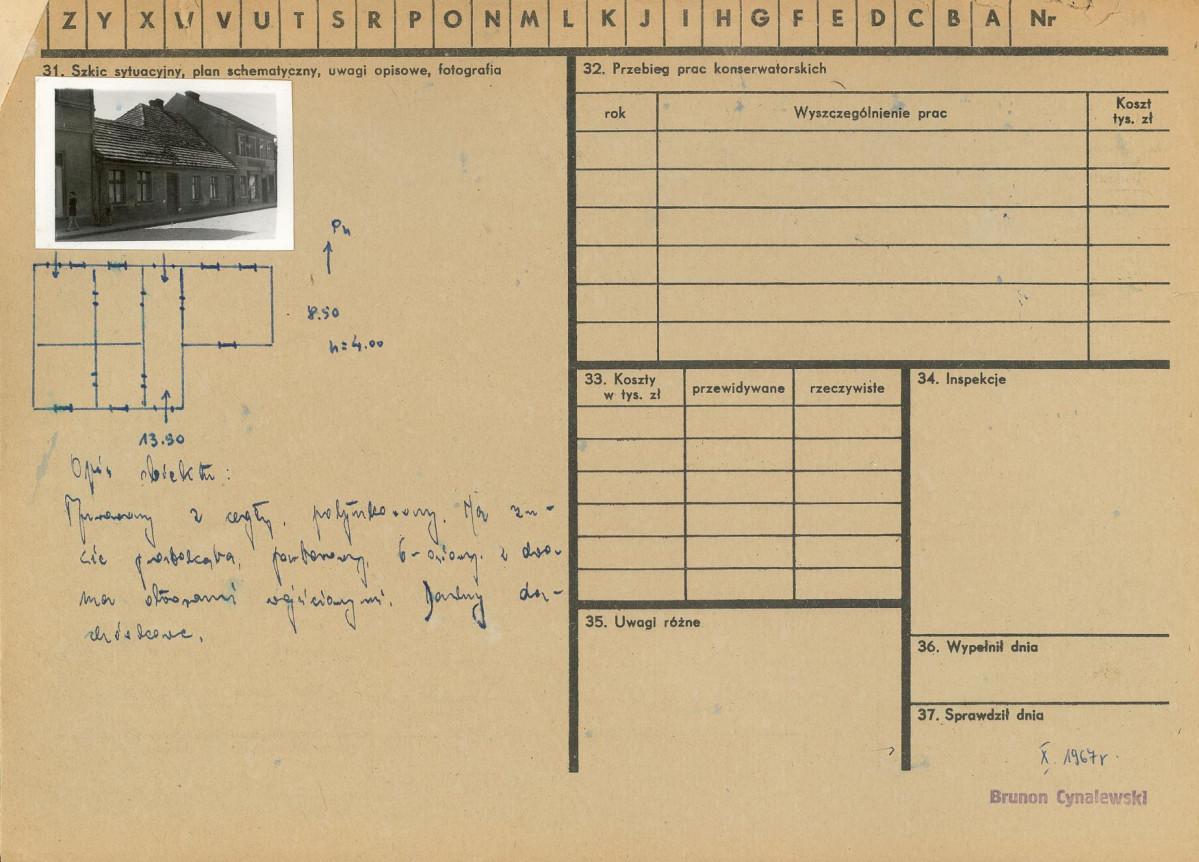 Z Y X W V U T S R P O N M L K J I H G F E D C B A Nr
31. Szkic sytuacyjny, plan schematyczny, uwagi opisowe, fotografia
Pn
8.50
h=4.00
13.90
Opis obiektu:
Murowany z cegły, potynkowany. Na rzu-
cie prostokąta, parterowy, 6-osiowy z dwo-
ma otworami wejściowymi. Dachy da-
chówkowe.
32. Przebieg prac konserwatorskich
rok
Wyszczególnienie prac
Koszt
tys. zł
33. Koszty
w tys. zł
przewidywane
rzeczywiste
34. Inspekcje
35. Uwagi różne
36. Wypełnił dnia
37. Sprawdził dnia
X. 1967 r.
Brunon Cynalewski